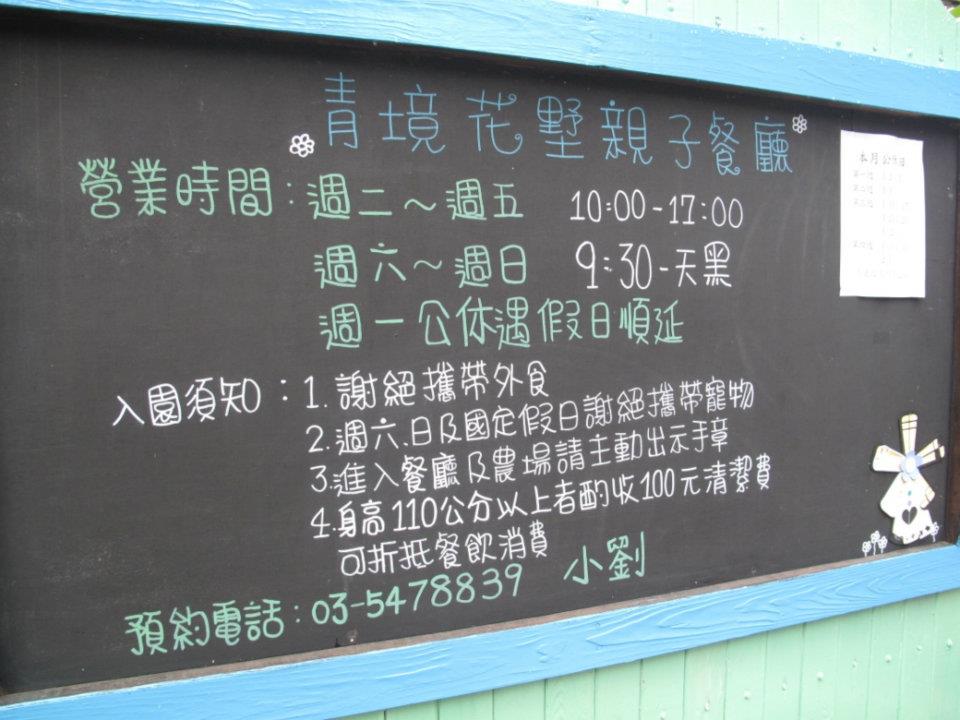 青境花墅親子餐廳
營業時間：週二～週五 10:00-17:00
週六～週日 9:30-天黑
週一公休遇假日順延
入園須知：1.謝絕攜帶外食
2.週六.日及國定假日謝絕攜帶寵物
3.進入餐廳及農場請主動出示手章
4.身高110公分以上者酌收100元清潔費
可折抵餐飲消費
預約電話：03-5478839 小劉
本月公休日